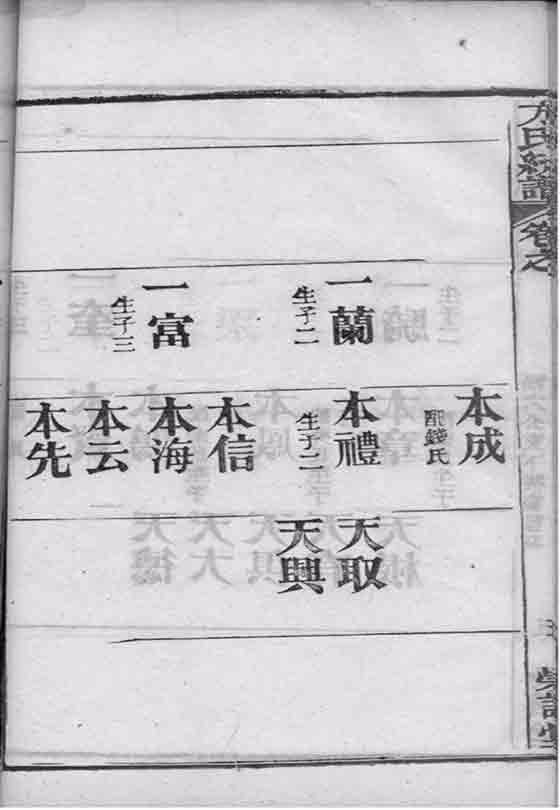 方氏統譜
卷之
一蘭
生子二
一富
生子三
本成
配錢氏
本禮
生子二
本信
本海
本云
本先
天取
天興